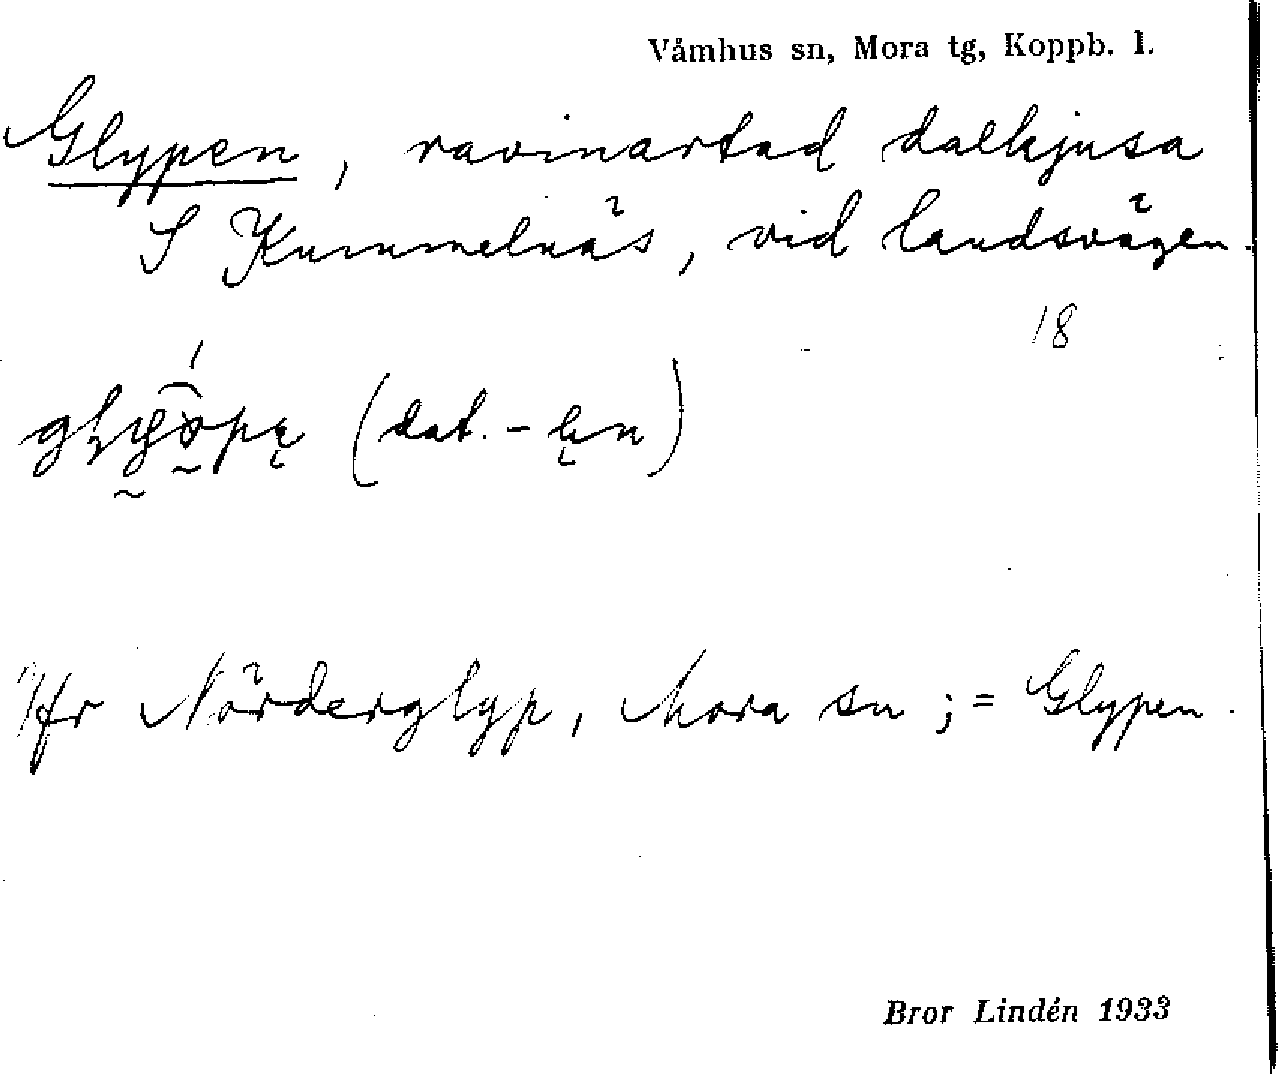 Våmhus sn, Mora tg, Koppb. l.
Glypen, ravinartad dalkjusa
S Kummelnäs, vid landsvägen.
18
(dat. - ęn)
Jfr Nörderglyp, Mora sn ; = Glypen.
Bror Lindén 1933